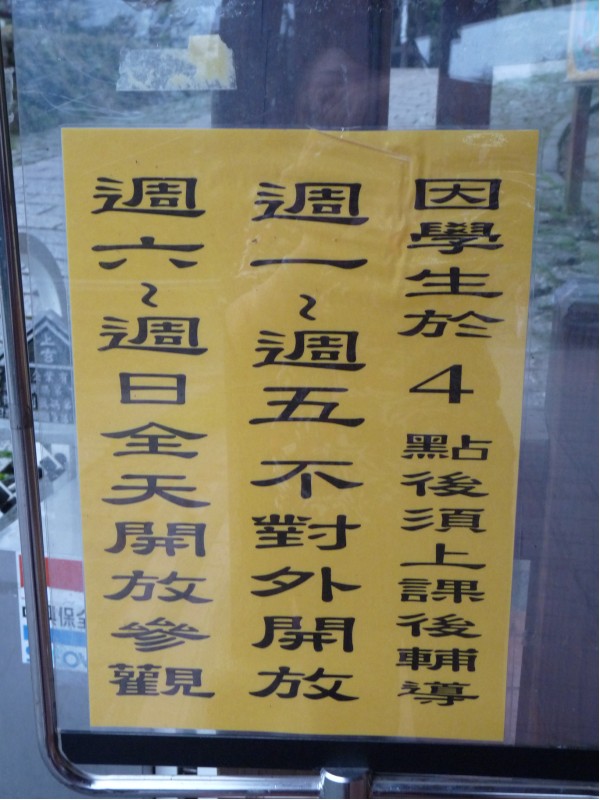 因學生於4點後須上課後輔導
週一~週五不對外開放
週六~週日全天開放參觀